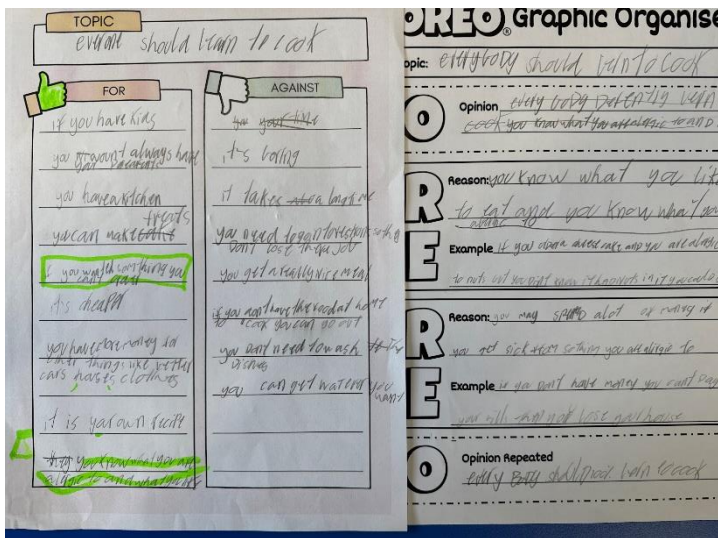 TOPIC
everone should learn to cook
FOR
if you have kids
you wount always have
your parents
you have a kitchen
treats
you can make
if you wanted something you
it's cheaper
you have more money for
other things like better
cars, houses, clothes
it is your own recipe
you know what you are
alergic to and what you like
AGAINST
it's boring
it takes a long time
you need to
Don't lose their job
you get a really nice meal
if you don't have the food at home
to cook you can go out
you Dont need to wash
Dishes
you can get
you want
OREO® Graphic Organise
Topic: everybody should lern to cook
O
Opinion every body
you know what you are alergic to and
R
Reason: you know what you lik
to eat and you know what yo
E
Example if you and you are alergic
to nuts but you Didnt know it had nots in it you could
R
Reason: you may spend alot of money if
you get sick from you are alergic to
E
Example if you Dont have money you cant pay
your bills lose your house
O
Opinion Repeated
every Body lern to cook